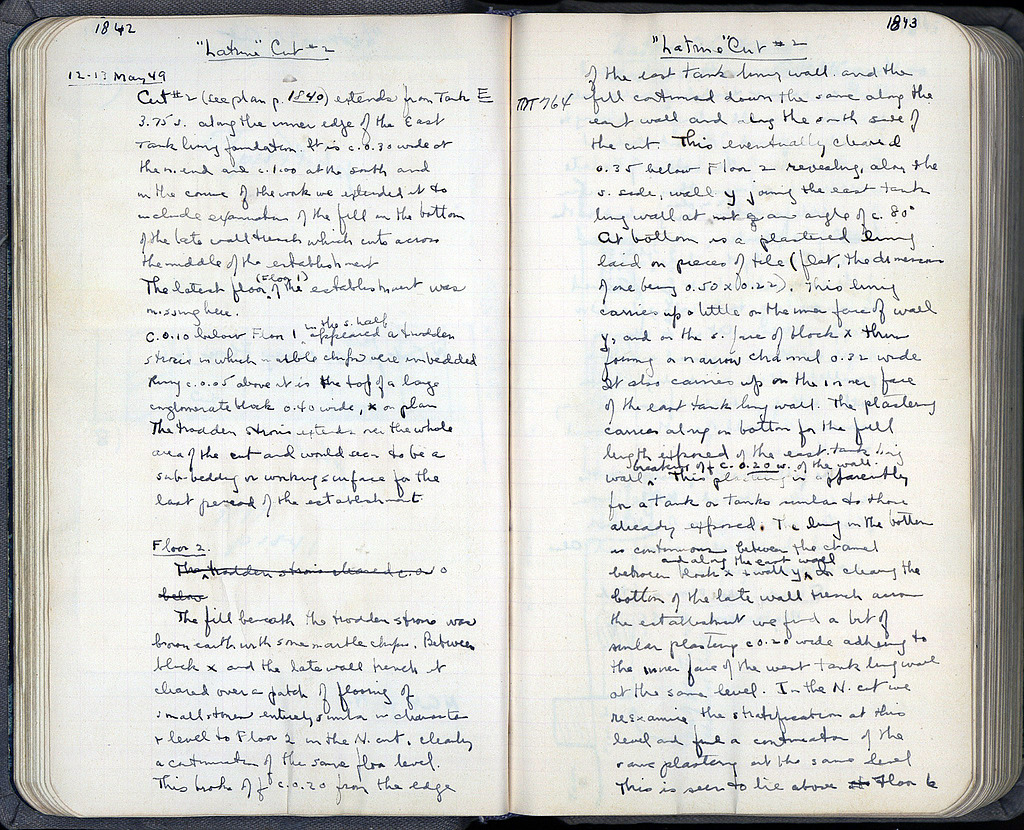 1842
"Latrine" Cut #2
12-13 May 49
Cut #2 (see plan p. 1840) extends from Tank E
3.75 s. along the inner edge of the East
Tank lining foundation. It is c. 0.30 wide at
the n. end and c. 1.00 at the south and
in the course of the work we extended it to
include examination of the fill in the bottom
of the late wall trench which cuts across
the middle of the establishment
The latest floor (Floor 1) of the establishment was
missing here.
c. 0.10 below Floor 1 in the s. half appeared a trodden
strosis in which marble chips were imbedded
Rising c. 0.05 above it is the top of a large
conglomerate block 0.40 wide, x on plan
The trodden strosis extends over the whole
area of the cut and would seem to be a
sub-bedding or working surface for the
last period of the establishment
Floor 2.
The trodden strosis cleared c. 0
below
The fill beneath the trodden strosis was
brown earth with some marble chips. Between
block x and the late wall trench it
cleared over a patch of flooring of
small stones entirely similar in character
+ level to Floor 2 in the N. cut, clearly
a continuation of the same floor level.
This broke off c. 0.20 from the edge
1843
"Latrine" Cut #2
of the east tank lining wall. and the
fill continued down the same along the
east wall and along the south side of
the cut. This eventually cleared
0.35 below Floor 2 revealing, along the
s. side, wall y joining the east tank
lining wall at not an angle of c. 80°
At bottom is a plastered lining
laid on pieces of tile (flat, the dimensions
of one being 0.50 x 0.22). This lining
carries up a little on the inner face of wall
y, and on the s. face of block x thus
forming a narrow channel 0.32 wide
It also carries up on the inner face
of the east tank lining wall. The plastering
carries along in bottom for the full
length exposed of the east tank lining
wall, breaking off c. 0.20 w. of the wall. This plastering is apparently
for a tank or tanks similar to those
already exposed. The lining in the bottom
is continuous between the channel
between block x + wall y, and along the east wall. In clearing the
bottom of the late wall trench across
the establishment we find a bit of
similar plastering c 0.20 wide adhering to
the inner face of the west tank lining wall
at the same level. In the N. cut we
reexamine the stratification at this
level and find a continuation of the
same plastering at the same level
This is seen to lie above Floor